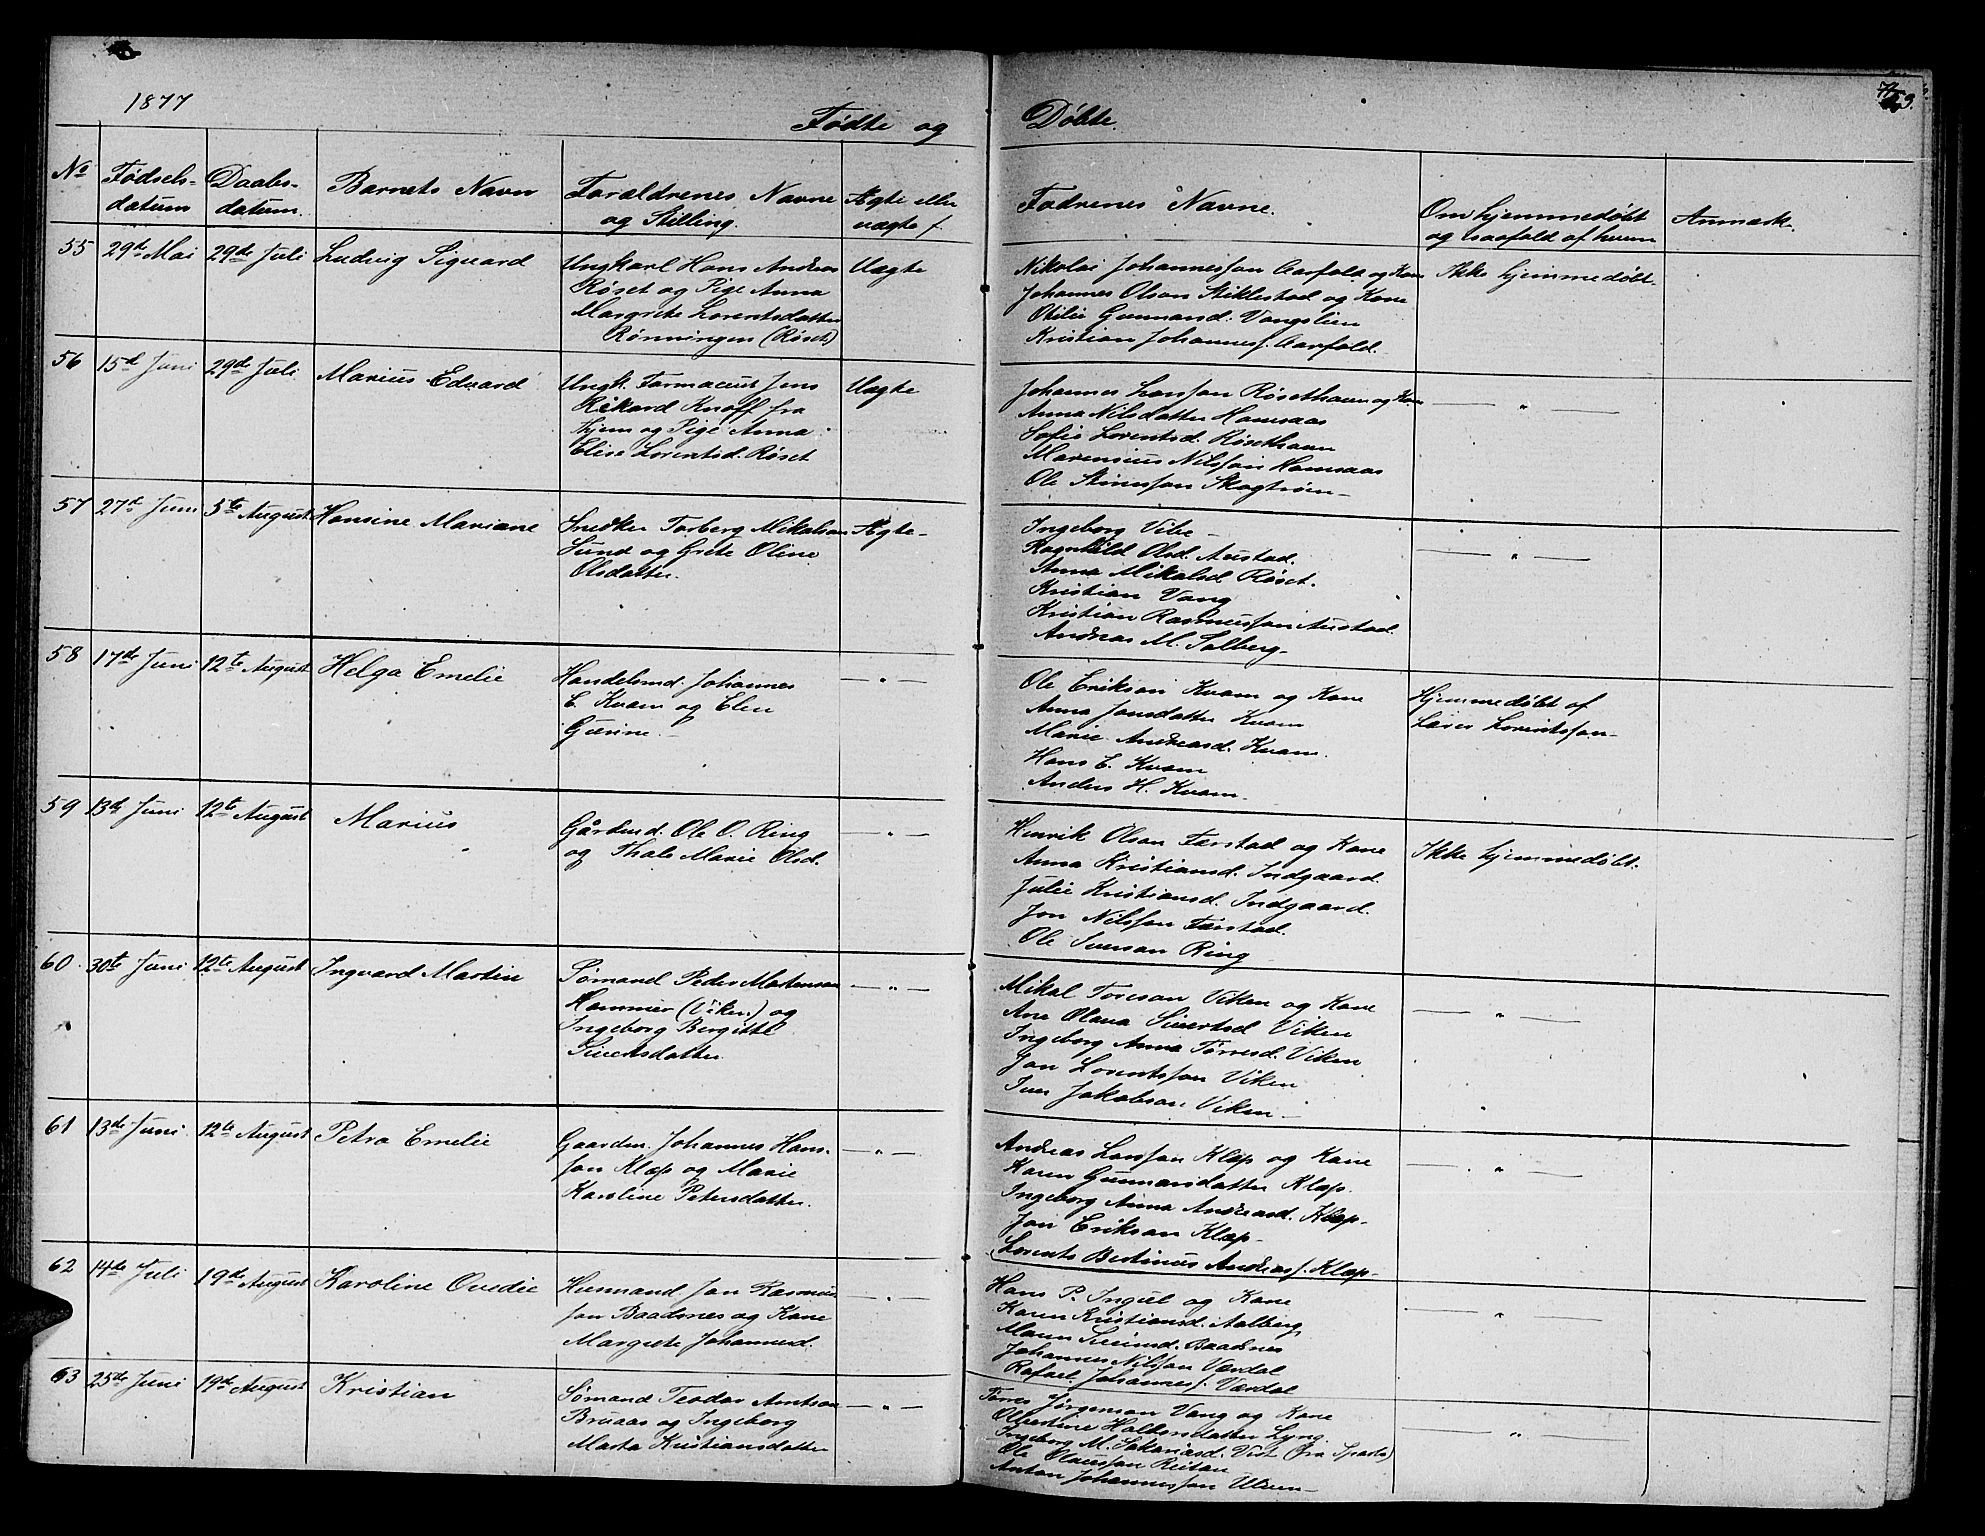 1877
Fødte og Døbte.
No
Fødsels-
datum
Daabs-
datum.
Barnets Navn
Forældrenes Navne
og Stilling.
Ægte eller
uægte f.
Fadrenes Navne.
Om hjemmedøbt
og isaafald af hvem
Anmærk.
55 29de Mai 29de Juli Ludvig Siguard
Ungkarl Hans Andreas
Røset og Pige Anna
Margrete Lorentsdatter
Rønningen (Røset)
Uægte
Nikolai Johannessen Aarfald og Kone
Johannes Olson Stiklestad og Kone
Otilie Gunnarsd. Vangslien
Kristian Johannesf. Aarfald.
Ikke hjemmedøbt.
56 15de Juni 29de Juli Marius Edvard
Ungk. Farmaceut Jens
Rikard Knoff fra
Hjem og Pige Anna
Elise Lorentsd. Røset
Uægte
Johannes Larsson Røsethaun og Kone
Anna Nilsdatter Hamsaas
Sofie Lorentsd. Røsethaun
Marensius Nilsson Hamsaas
Ole Skogtrøen
— " —
57 27de Juni 5te August Hansine Mariane
Snedker Torberg Mikalson
Sund og Grete Oline
Olsdatter.
Ægte
Ingeborg Vibe
Ragnhild Olsd. Austad.
Anna Mikalsd. Røset.
Kristian Vang
Kristian Rasmusson Austad.
Andreas M. Solberg
— " —
58 17de Juni 12te August Helga Emelie
Handelsmd. Johannes
E. Kvam og Elen
Gurine.
— " —
Ole Erikson Kvam og Kone
Anna Jonsdatter Kvam
Marie Andreasd. Kvam.
Hans E. Kvam
Anders H. Kvam
Hjemmedøbt af
Lars Lorentsson
59 13de Juni 12te August Marius
Gårdmd. Ole O. Ring
og Thale Marie Olsd.
— " —
Henrik Olson Færstad og Kone
Anna Kristiansd. Indgaard.
Julie Kristiansd. Indgaard.
Jon Nilsson Færstad.
Ole Svenson Ring
Ikke hjemmedøbt.
60. 30te Juni 12te August Ingvard Martin
Sømand Peder Mortenson
Hammer (Viken) og
Ingeborg Bergitte
Sivertsdatter
— " —
Mikal Toreson Viken og Kone
Ane Olava Sivertsd. Viken
Ingeborg Anna Tørresd. Viken
Jon Lorentsson Viken
Iver Jakobson Viken
— " —
61 13de Juni 12te August Petra Emelie
Gaardm. Johannes Hans-
son Klæp og Marie
Karoline Petersdatter.
— " —
Andreas Larsson Klæp og Kone
Karen Gunnarsdatter Klæp.
Ingeborg Anna Andreasd. Klæp
Jon Erikson Klæp
Lorents Bertinus Andreasf. Klæp
— " —
62 14de Juli 19de August Karoline Ovedie
Husmand Jon Rasmus-
son Baadsnes og Kone
Margrete Johannesd.
— " —
Hans P. Ingul og Kone
Karen Kristiansd. Aalberg
Maren Baadsnes
Johannes Nilsson Værdal
Rafael Johannesf. Værdal
— " —
63 25de Juni 19de August Kristian
Sømand Teodor Arntson
Bruaas og Ingeborg
Marta Kristiansdatter
— " —
Tørres Jørgenson Vang og Kone
Olbertine Haltorsdatter Lyng.
Ingeborg M. Sakariasd. Vist (fra Sparbo)
Ole Olausson Reitan
Anton Johannesson Ulven
— " —